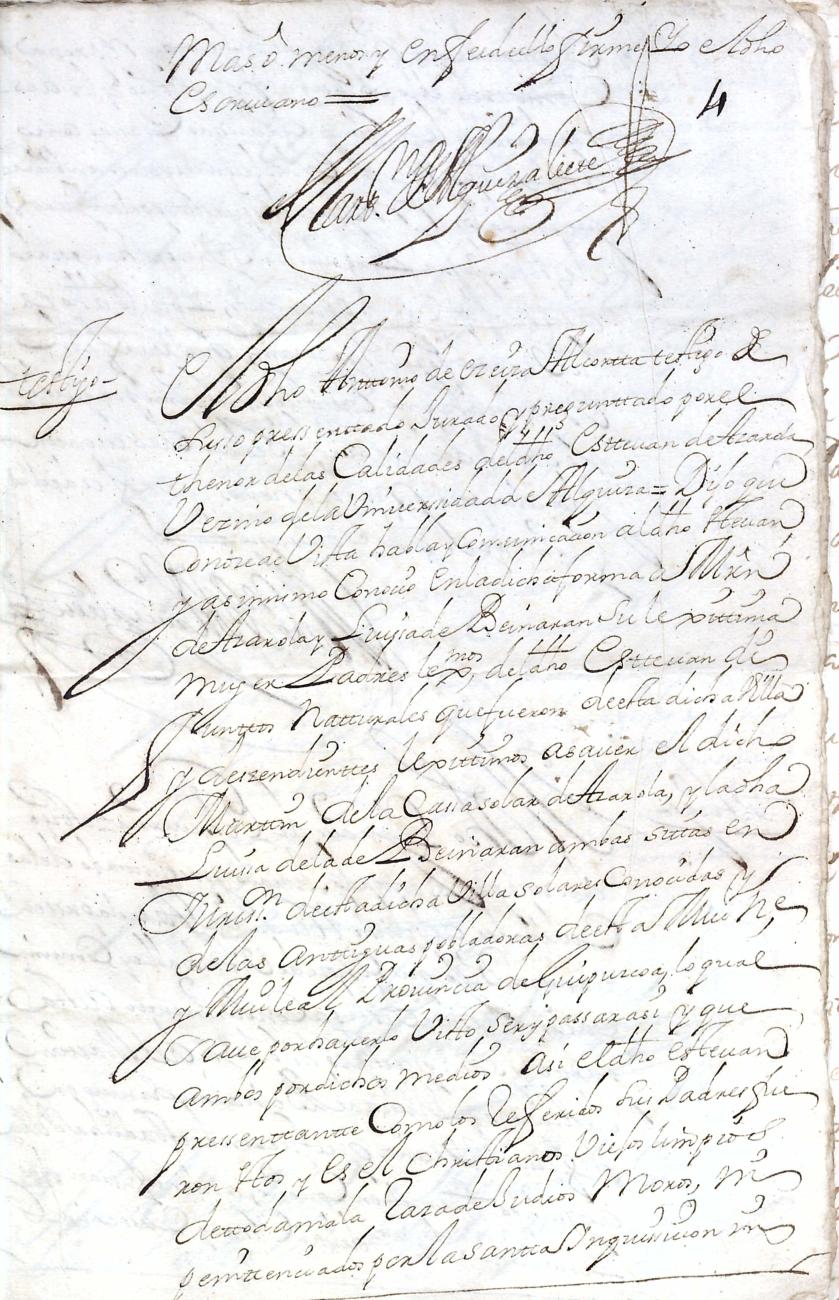 Mas o menos y en fe de ello firme Yo el dho
escriuano =
4
Mart. de Alguizalecte
testigo
El dho Anttonio de Alcortta testigo de
suso pressenttado Jurado y preguntado por el
thenor de las Calidades del dho Esttevan de Azarola
Vezino de la Vniuersidad de Alquiza = Dijo que
Conoze de Vista habla y Comunicacion al dho stevan
y asimismo Conocio en la dicha forma a Mrn
de Azarola y Luysa de Beinaran su lexittima
muger Padres lexmos del dho Esttevan de
Junttos natturales que fueron de esta dicha Villa
y deszendienttes lexittimos a sauer el dicho
Martin de la Cassa solar de Azarola, y la dha
Luisa de la de Beinaran ambas sitas en
Jurisn. de esta dicha Villa solares Conocidas y
de las anttiguas pobladoras de esta Mui Ne
y Mui leal Provincia de Guipuzcoa, lo qual
saue por hauerlo Visto ser y passar asi y que
ambos por dichos medios. asi el dho esteuan
pressenttantte Como los Referidos sus Padres fue
ron ttos y Es el Christtianos Viejos limpios
de toda mala Raza de Judios Moros, ni
penitenciados por la santta Inquisicion ni